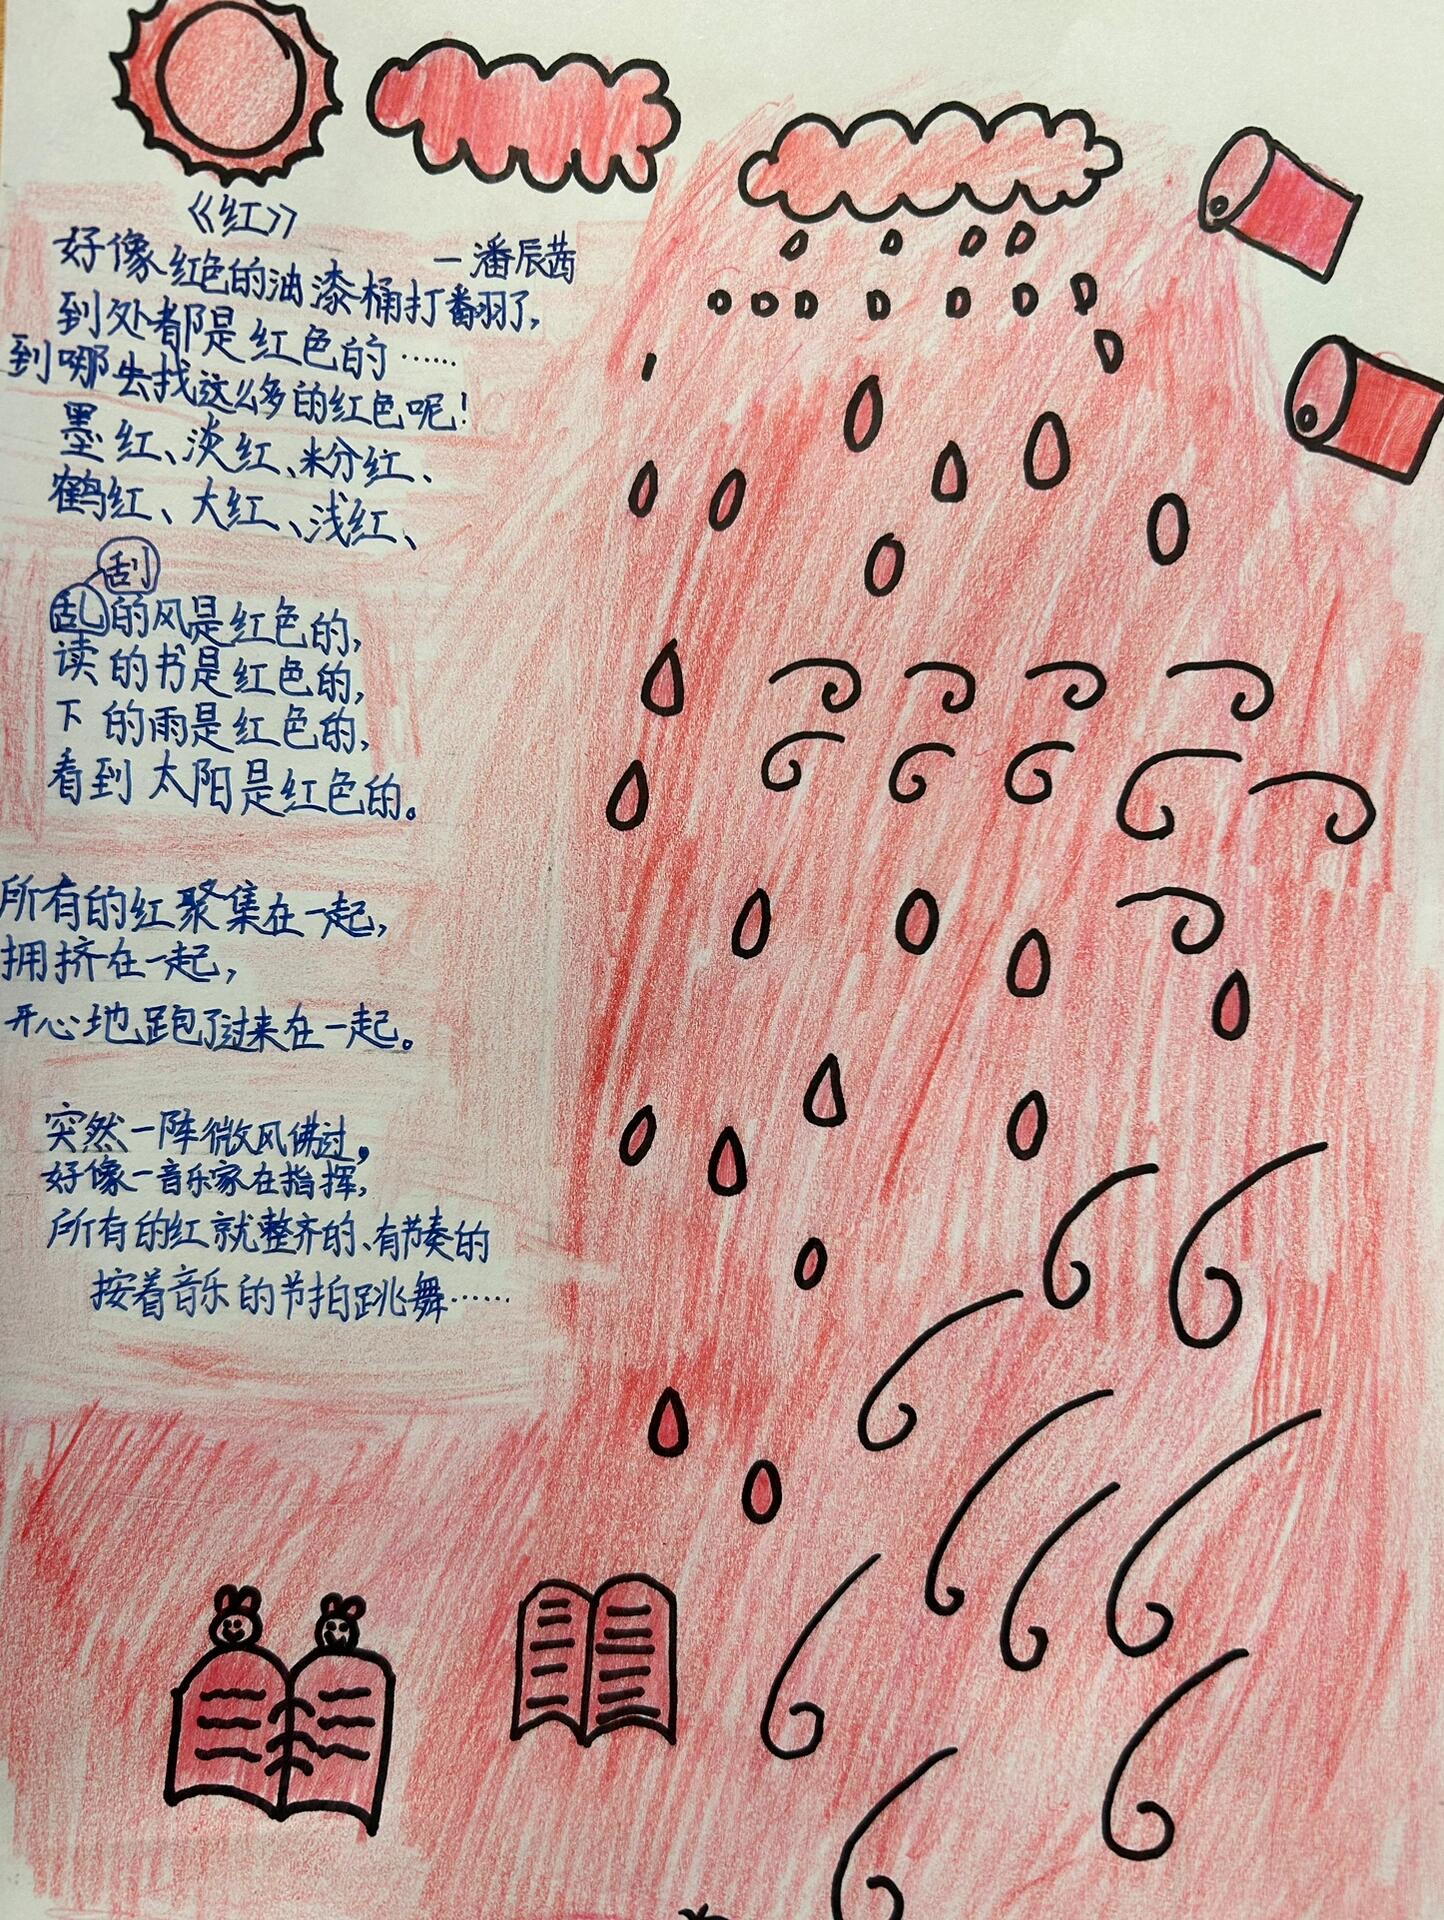 《红》
—潘辰茜
好像红色的油漆桶打翻了，
到处都是红色的……
到哪去找这么多的红色呢！
墨红、淡红、粉红、
鹤红、大红、浅红、
刮
乱的风是红色的，
读的书是红色的，
下的雨是红色的，
看到太阳是红色的。
所有的红聚集在一起，
拥挤在一起，
开心地跑了过来在一起。
突然一阵微风佛过，
好像一音乐家在指挥，
所有的红就整齐的、有节奏的
按着音乐的节拍跳舞……